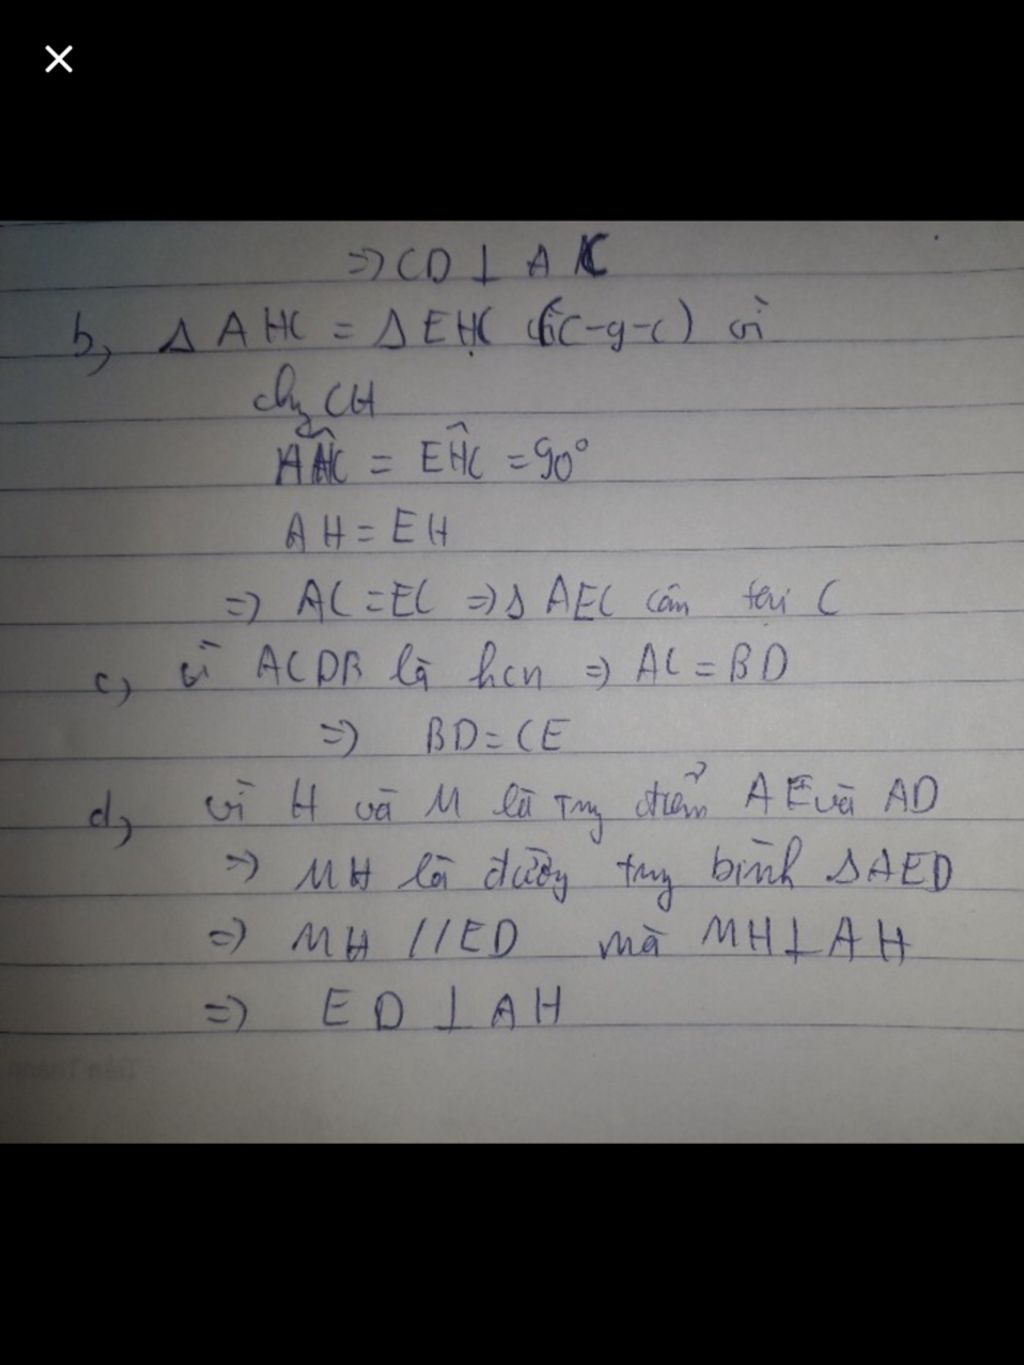 => CD ⊥ AC
b, Δ AHC = Δ EHC (c-g-c) vì
chg CH
AĤC = EĤC = 90°
AH = EH
=> AC = EC => Δ AEC cân tại C
c, vì ACDB là hcn => AC = BD
=> BD = CE
d, vì H và M là Trg điểm AE và AD
=> MH là đường trg bình ΔAED
=> MH // ED mà MH ⊥ AH
=> ED ⊥ AH